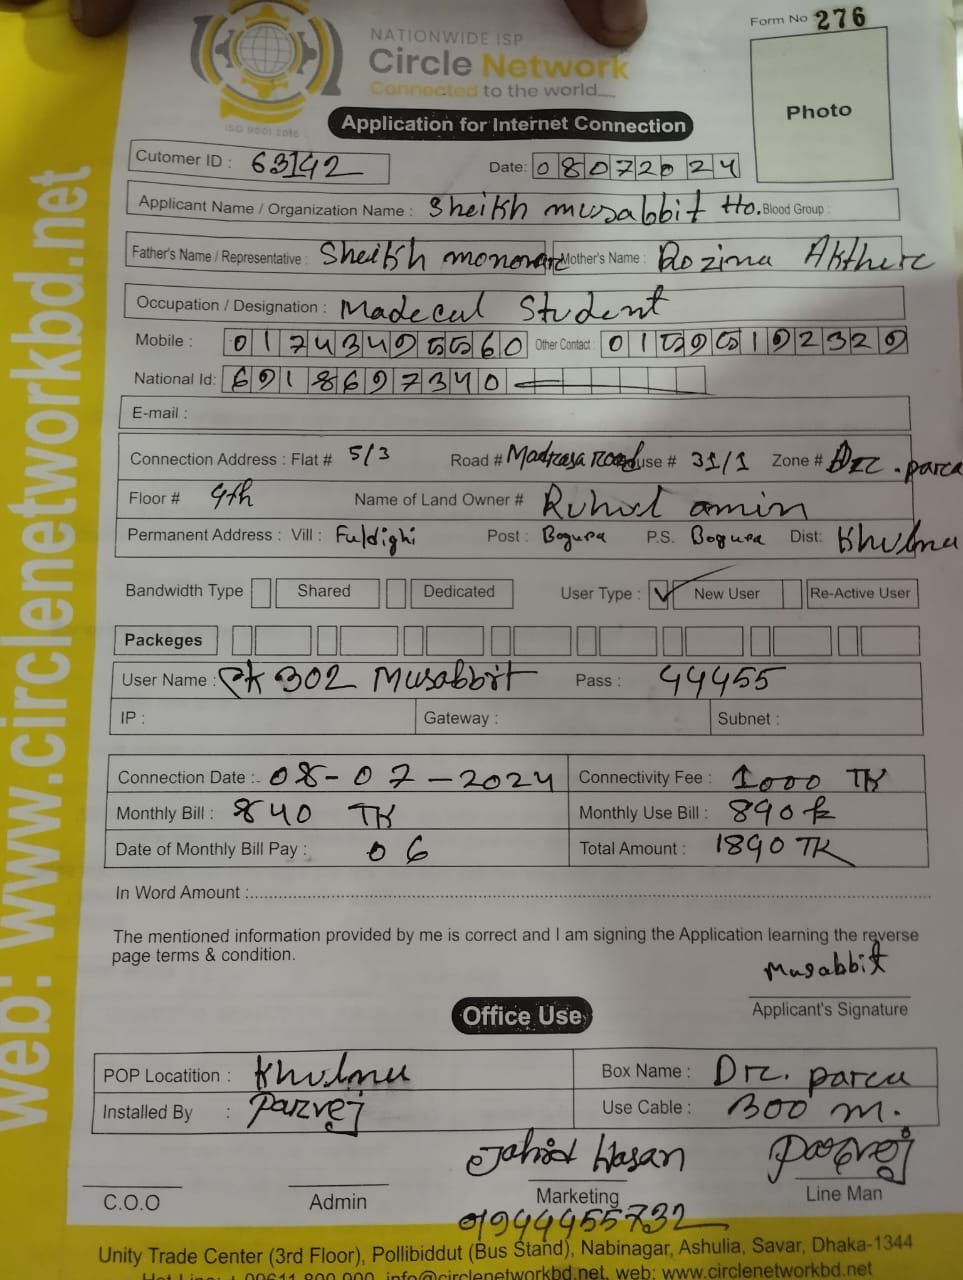 Form No 276
NATIONWIDE ISP
Circle Network
Connected to the world....
ISO 9001:2015
Photo
Application for Internet Connection
Cutomer ID : 63142 Date: 08072024
Applicant Name / Organization Name : Sheikh musabbit Ho. Blood Group :
Father's Name / Representative : Sheikh monowar Mother's Name : Rozina Aktherc
Occupation / Designation : Madecal Student
Mobile : 01743495560 Other Contact : 01595192329
National Id: 6918697340
E-mail :
Connection Address : Flat # 5/3 Road # Madrasa road House # 31/1 Zone # Drc. parca
Floor # 4th Name of Land Owner # Ruhul amin
Permanent Address : Vill : Fuldighi Post : Bogura P.S. Bogura Dist: Khulna
Bandwidth Type Shared Dedicated User Type : New User Re-Active User
Packeges
User Name : Pk 302 Musabbit Pass : 44455
IP : Gateway : Subnet :
Connection Date :- 08-07-2024 Connectivity Fee : 1000 TK
Monthly Bill : 840 TK Monthly Use Bill : 890
Date of Monthly Bill Pay : 06 Total Amount : 1890 TK
In Word Amount :
The mentioned information provided by me is correct and I am signing the Application learning the reverse
page terms & condition.
Musabbit
Applicant's Signature
Office Use
POP Locatition : Khulna Box Name : Drc. parca
Installed By : Parvej Use Cable : 300 m.
Jahid Hasan Parvej
C.O.O Admin Marketing Line Man
01944455732
Unity Trade Center (3rd Floor), Pollibiddut (Bus Stand), Nabinagar, Ashulia, Savar, Dhaka-1344
info@circlenetworkbd.net, web: www.circlenetworkbd.net
web: www.circlenetworkbd.net